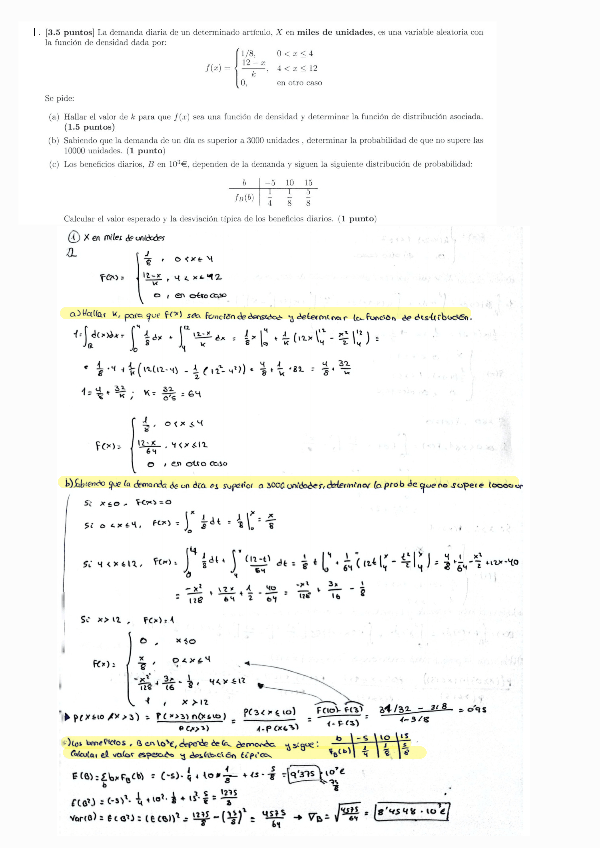 1. [3.5 puntos] La demanda diaria de un determinado artículo, X en miles de unidades, es una variable aleatoria con
la función de densidad dada por:
f(x) = { 1/8, 0 < x ≤ 4
(12 − x)/k, 4 < x ≤ 12
0, en otro caso
Se pide:
(a) Hallar el valor de k para que f(x) sea una función de densidad y determinar la función de distribución asociada.
(1.5 puntos)
(b) Sabiendo que la demanda de un día es superior a 3000 unidades , determinar la probabilidad de que no supere las
10000 unidades. (1 punto)
(c) Los beneficios diarios, B en 10³€, dependen de la demanda y siguen la siguiente distribución de probabilidad:
b | −5 10 15
f_B(b) | 1/4 1/8 5/8
Calcular el valor esperado y la desviación típica de los beneficios diarios. (1 punto)
① X en miles de unidades
F(x) = { 1/8, 0 < x ≤ 4
(12-x)/k, 4 < x ≤ 12
0, en otro caso
a) Hallar K, para que F(x) sea función de densidad y determinar la función de distribución.
1 = ∫_R f(x)dx = ∫_0^4 1/8 dx + ∫_4^12 (12-x)/k dx = 1/8 x |_0^4 + 1/k (12x |_4^12 - x²/2 |_4^12) =
= 1/8 · 4 + 1/k (12(12-4) - 1/2 (12² - 4²)) = 4/8 + 1/k · 32 = 4/8 + 32/k
1 = 4/8 + 32/k ; K = 32/0'5 = 64
F(x) = { 1/8, 0 < x ≤ 4
(12-x)/64, 4 < x ≤ 12
0, en otro caso
b) Sabiendo que la demanda de un día es superior a 3000 unidades, determinar la prob de que no supere 10000 ur
Si x ≤ 0, F(x) = 0
Si 0 < x ≤ 4, F(x) = ∫_0^x 1/8 dt = 1/8 |_0^x = x/8
Si 4 < x ≤ 12, F(x) = ∫_0^4 1/8 dt + ∫_4^x (12-t)/64 dt = 1/8 t |_0^4 + 1/64 (12t |_4^x - t²/2 |_4^x) = 4/8 + 1/64 · -x²/2 + 12x - 40
= -x²/128 + 12x/64 + 1/2 - 40/64 = -x²/128 + 3x/16 - 1/8
Si x > 12, F(x) = 1
F(x) = { 0, x ≤ 0
x/8, 0 < x ≤ 4
-x²/128 + 3x/16 - 1/8, 4 < x ≤ 12
1, x > 12
P(x ≤ 10 / x > 3) = P(x > 3) ∩ (x ≤ 10) / P(x > 3) = P(3 < x ≤ 10) / 1-P(x ≤ 3) = F(10) - F(3) / 1-F(3) = 31/32 - 3/8 / 1-3/8 = 0'95
c) Los beneficios, B en 10³€, depende de la demanda y sigue: b | -5 | 10 | 15
F_B(b) | 1/4 | 1/8 | 5/8
Calcular el valor esperado y desviación típica
E(B) = Σ b·F_B(b) = (-5) · 1/4 + 10 · 1/8 + 15 · 5/8 = 9'375 · 10³€
75/8
E(B²) = (-5)² · 1/4 + 10² · 1/8 + 15² · 5/8 = 1275/8
Var(B) = E(B²) - (E(B))² = 1275/8 - (75/8)² = 4575/64 → σ_B = √4575/64 = 8'4548 · 10³€